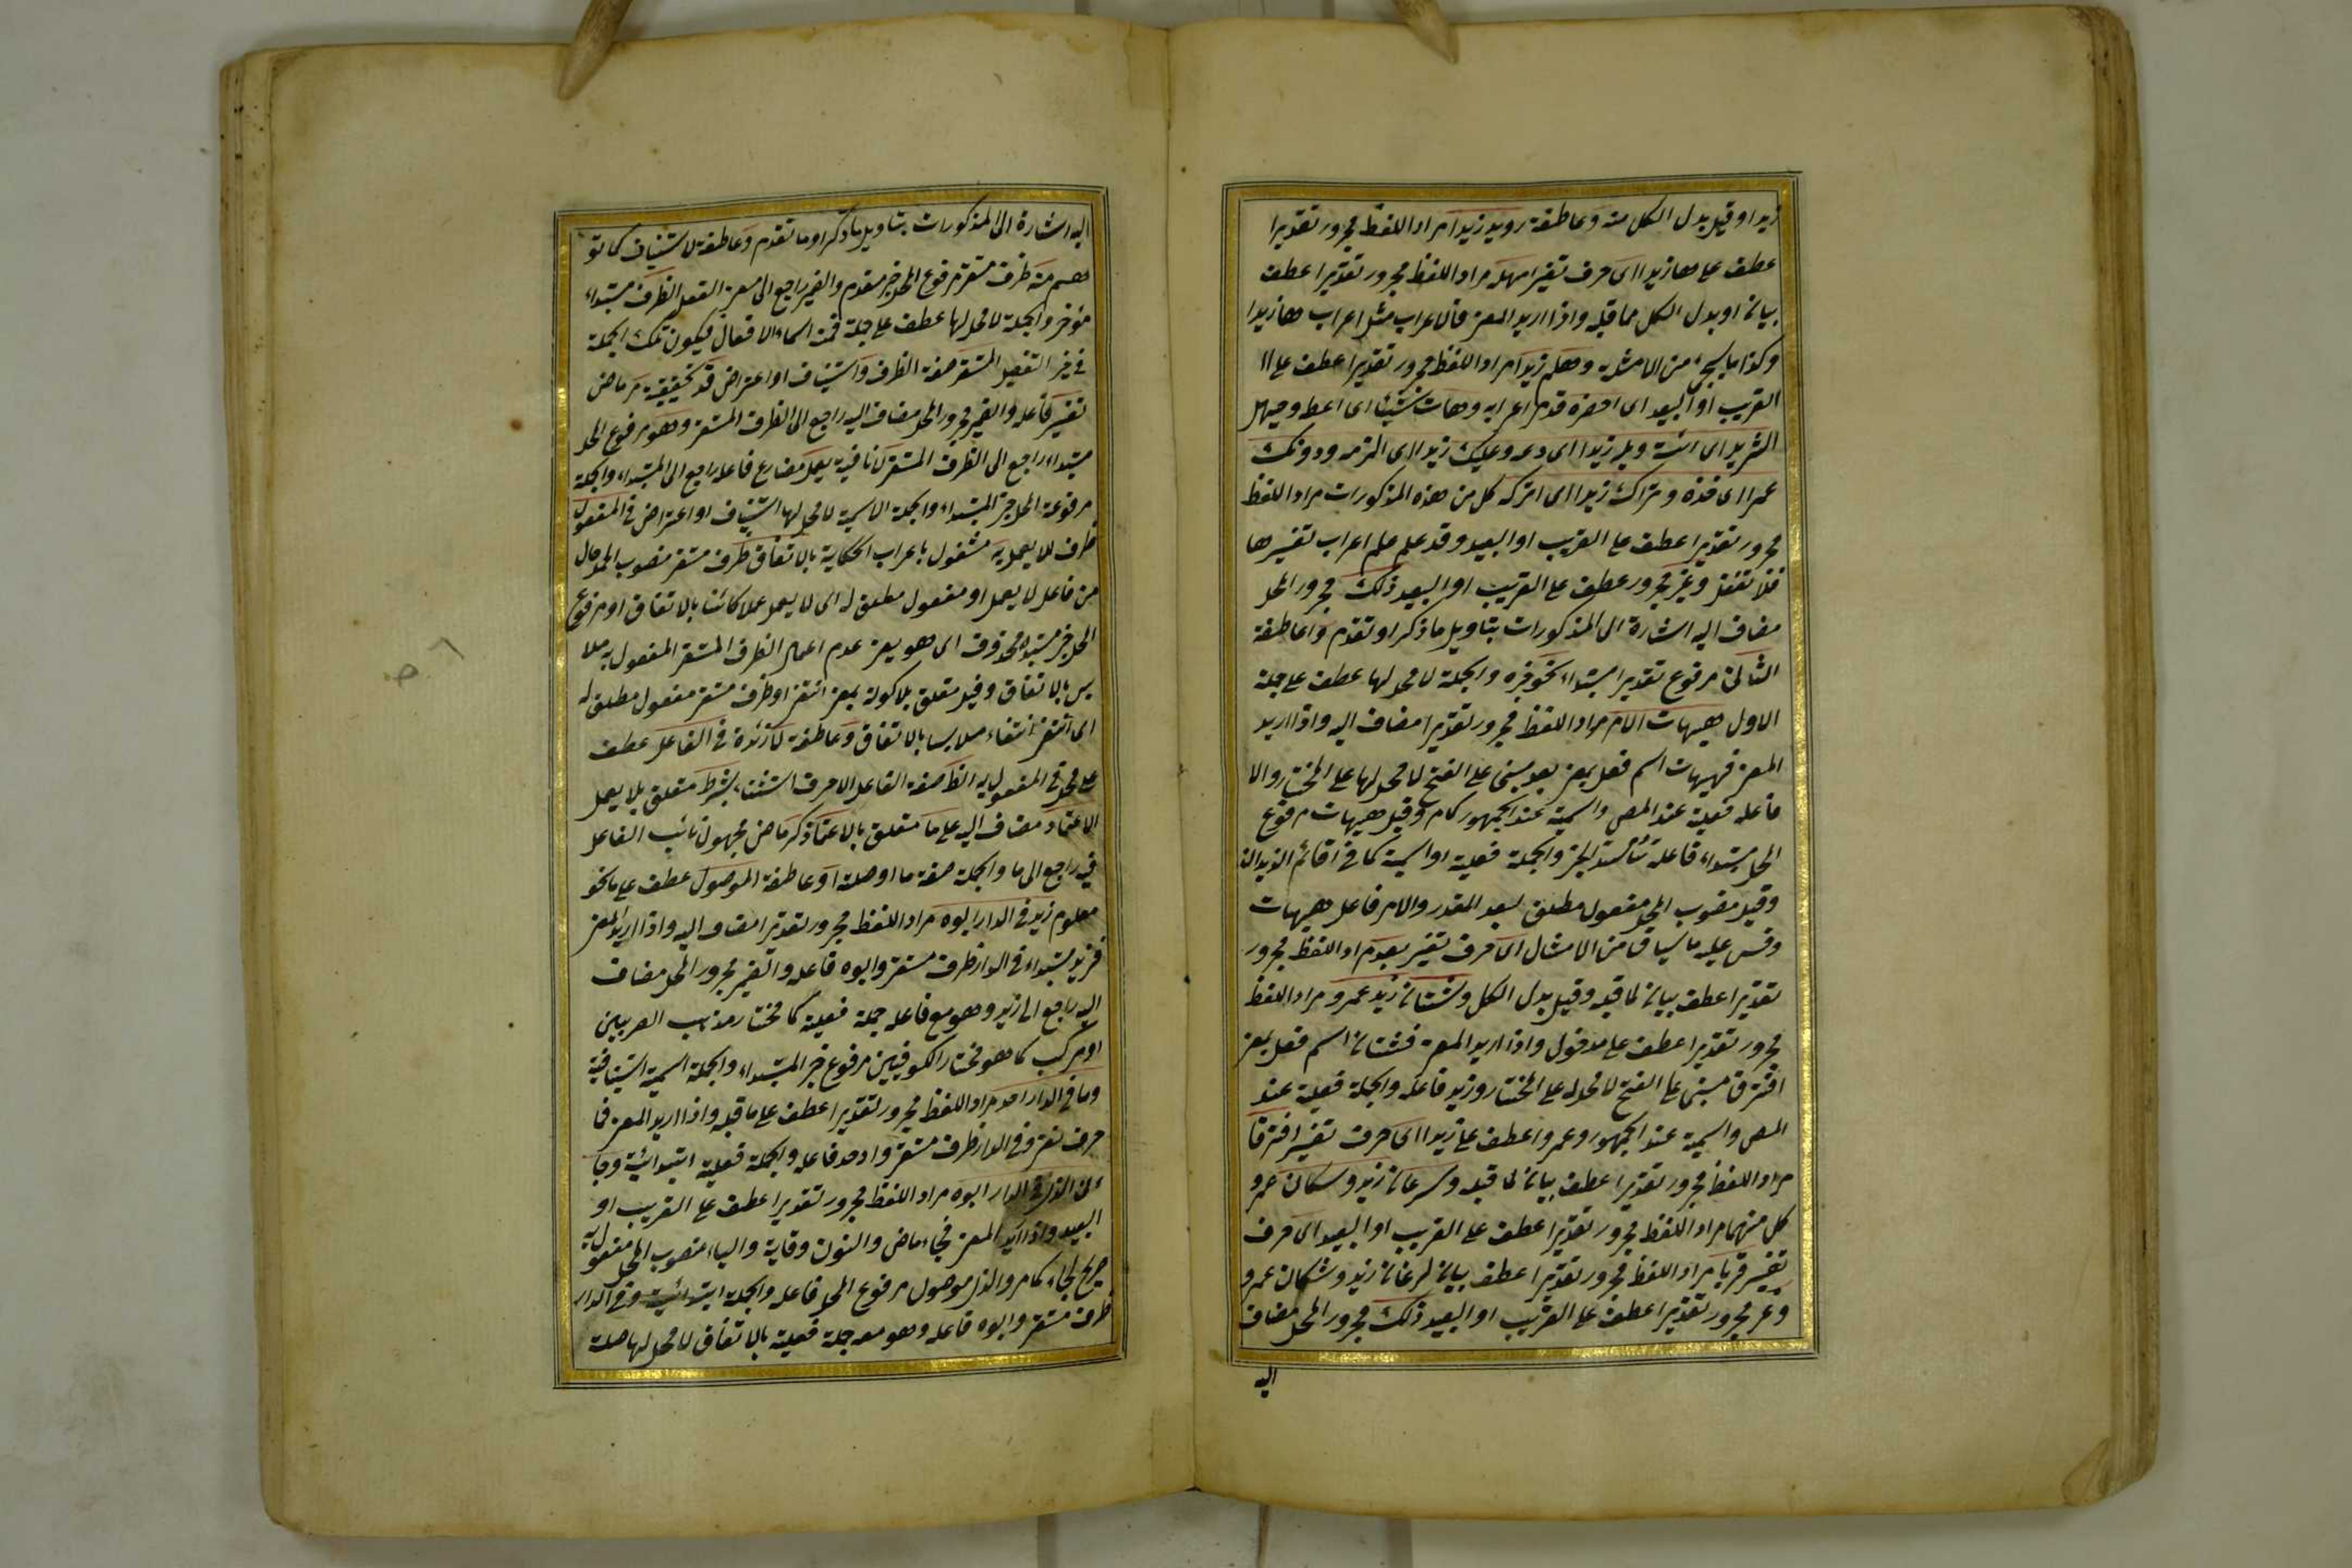 زيدا وقيل بدل الكل منه وعاطفة رويد زيدا مراد اللفظ مجرور تقديرا
عطف على ها زيدا اى حرف تفسير امهله مراد اللفظ مجرور تقديرا عطف
بيان او بدل الكل مما قبله واذا اريد المعنى فالاعراب مثل اعراب ها زيدا
وكذا ما يجئ من الامثلة وهلم زيدا مراد اللفظ مجرور تقديرا عطف على اا
القريب او البعيد اى احضره قد مر اعرابه وهات شيئا اى اعط وحيهل
الثريد اى ائته وبله زيدا اى دعه وعليك زيدا اى الزمه ودونك
عمرا اى خذه وتراك زيدا اى اتركه كل من هذه المذكورات مراد اللفظ
مجرور تقديرا عطف على القريب او البعيد وقد علم اعراب تفسيرها
فلا تغفل وغير مجرور عطف على القريب او البعيد ذلك مجرور المحل
مضاف اليه اشارة الى المذكورات بتاويل ما ذكر او تقدم وعاطفة
الثانى مرفوع تقديرا مبتداء نحو خبره والجملة لا محل لها عطف على جملة
الاول هيهات الامر مراد اللفظ مجرور تقديرا مضاف اليه واذا اريد
المعنى فهيهات اسم فعل بمعنى بعد مبنى على الفتح لا محل لها على المختار والا
فاعله فعلية عند المص واسمية عند الجمهور كامر وقيل هيهات مرفوع
المحل مبتداء فاعله سد مسد الخبر والجملة فعلية او اسمية كما فى اقائم الزيدان
وقيل منصوب المحل مفعول مطلق لبعد المقدر والامر فاعل هيهات
وقس عليه ما سياتى من الامثال اى حرف تفسير بعد مراد اللفظ مجرور
تقديرا عطف بيان لما قبله وقيل بدل الكل وشتان زيد عمرو مراد اللفظ
مجرور تقديرا عطف على مدخول واذا اريد المعنى فشتان اسم فعل بمعنى
افترق مبنى على الفتح لا محل له على المختار وزيد فاعله والجملة فعلية عند
المص واسمية عند الجمهور وعمرو عطف على زيد اى حرف تفسير افترقا
مراد اللفظ مجرور تقديرا عطف بيان لما قبله وسرعان زيد وسكان عمرو
كل منهما مراد اللفظ مجرور تقديرا عطف على القريب او البعيد اى حرف
تفسير قربا مراد اللفظ مجرور تقديرا عطف بيان لسرعان زيد وشكان عمرو
وغير مجرور تقديرا عطف على القريب او البعيد ذلك مجرور المحل مضاف
اليه
اليه اشارة الى المذكورات بتاويل ما ذكر او ما تقدم وعاطفة لاستيناف كما تو
هم منه ظرف مستقر مرفوع المحل خبر مقدم والضمير راجع الى معنى الفعل الظرف مبتداء
مؤخر والجملة لا محل لها عطف على جملة فمنه اسماء الافعال فيكون تلك الجملة
فى حيز التفصيل المستقر صفة الظرف واستيناف او اعتراض قد تحقيقية مر ماض
تفسير فاعله والضمير مجرور المحل مضاف اليه راجع الى الظرف المستقر وهو مرفوع المحل
مبتداء راجع الى الظرف المستقر لا نافية يعمل مضارع فاعله راجع الى المبتداء والجملة
مرفوعة المحل خبر المبتداء والجملة الاسمية لا محل لها استيناف او اعتراض فى المفعول
ظرف للا يعمل به مشغول باعراب الحكاية بالاتفاق ظرف مستقر منصوب المحل حال
من فاعل لا يعمل او مفعول مطلق له اى لا يعمل عملا كائنا بالاتفاق او مرفوع
المحل خبر مبتداء محذوف اى هو يعنى عدم اعمال الظرف المستقر المفعول به ملا
بس بالاتفاق وقيل متعلق بلا كونه بمعنى انتفى او ظرف مستقر مفعول مطلق له
اى انتفى انتفاء ملابسا بالاتفاق وعاطفة لا زائدة فى الفاعل عطف
على محل فى المفعول به الظا صفة الفاعل الا حرف استثناء بشرط متعلق بلا يعمل
الاعتماد مضاف اليه على ما متعلق بالاعتماد ذكر ماض مجهول نائب الفاعل
فيه راجع الى ما والجملة صفة ما او صلة او عاطفة الموصول عطف على ما نحو
معلوم زيد فى الدار ابوه مراد اللفظ مجرور تقديرا مضاف اليه واذا اريد المعنى
فزيد مبتداء فى الدار ظرف مستقر وابوه فاعله والضمير مجرور المحل مضاف
اليه راجع الى زيد وهو مع فاعله جملة فعلية كما مختار مذهب البصريين
او مركب كما هو مختار الكوفيين مرفوع خبر المبتداء والجملة اسمية استينافية
وما فى الدار احد مراد اللفظ مجرور تقديرا عطف على ما قبله واذا اريد المعنى فما
حرف نفى وفى الدار ظرف مستقر واحد فاعله والجملة فعلية ابتدائية وجا
ئنى الذى فى الدار ابوه مراد اللفظ مجرور تقديرا عطف على القريب او
البعيد واذا اريد المعنى فجاء ماض والنون وقاية والياء منصوب المحل مفعول به
صريح لجاء كما مر والذى موصول مرفوع المحل فاعله والجملة ابتدائية وفى الدار
ظرف مستقر وابوه فاعله وهو معه جملة فعلية بالاتفاق لا محل لها صلة